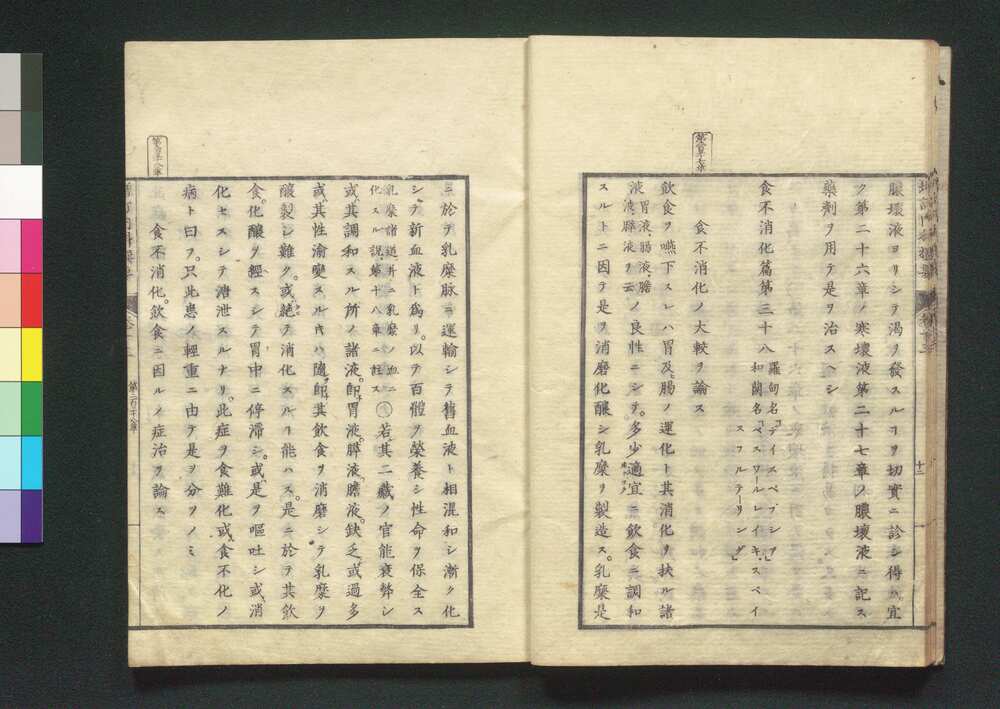 膿壊液ヨリシテ渇ヲ發スルヿヲ切實ニ診シ得ハ宜
ク第二十六章ノ寒壊液第二十七章ノ膿壊液ニ記ス
藥劑ヲ用テ是ヲ治スヘシ
食不消化篇第三十八
羅甸名「デイスペプシア」
和蘭名「ベスワールレイキ.スペイ
スフルテーリング」
第百三十七章
食不消化ノ大較ヲ論ス
飲食ヲ嚥下スレハ胃及腸ノ運化ト其消化ヲ扶ル諸
液胃液、腸液、膽
液、膵液ヲ云ノ良性ニシテ多少適宜ニ飲食ニ調和
スルトニ因テ是ヲ消磨化釀シ乳糜ヲ製造ス。乳糜是
十二
ニ於テ乳糜脉ニ運輸シテ舊血液ト相混和シ漸ク化
シテ新血液ト爲リ。以テ百體ヲ榮養シ性命ヲ保全ス
乳糜諸道并ニ乳糜ノ血ニ
化スル説、第十八章ニ註ス
若其二藏ノ官能衰弊シ
或其調和スル所ノ諸液。即胃液。膵液。膽液。缺乏或過多
或其性渝變スル寸ハ隨即其飲食ヲ消磨シテ乳糜ヲ
釀製シ難ク。或絶テ消化スルヿ能ハス。是ニ於テ其飲
食。化釀ヲ經スシテ胃中ニ停滞シ。或是ヲ嘔吐シ或消
化セスシテ溏泄スルナリ。此症ヲ食難化或食不化ノ
病ト曰フ。只此患ノ輕重ニ由テ是ヲ分ツノミ
第百三十八章
食不消化。飲食ニ因ルノ症治ヲ論ス